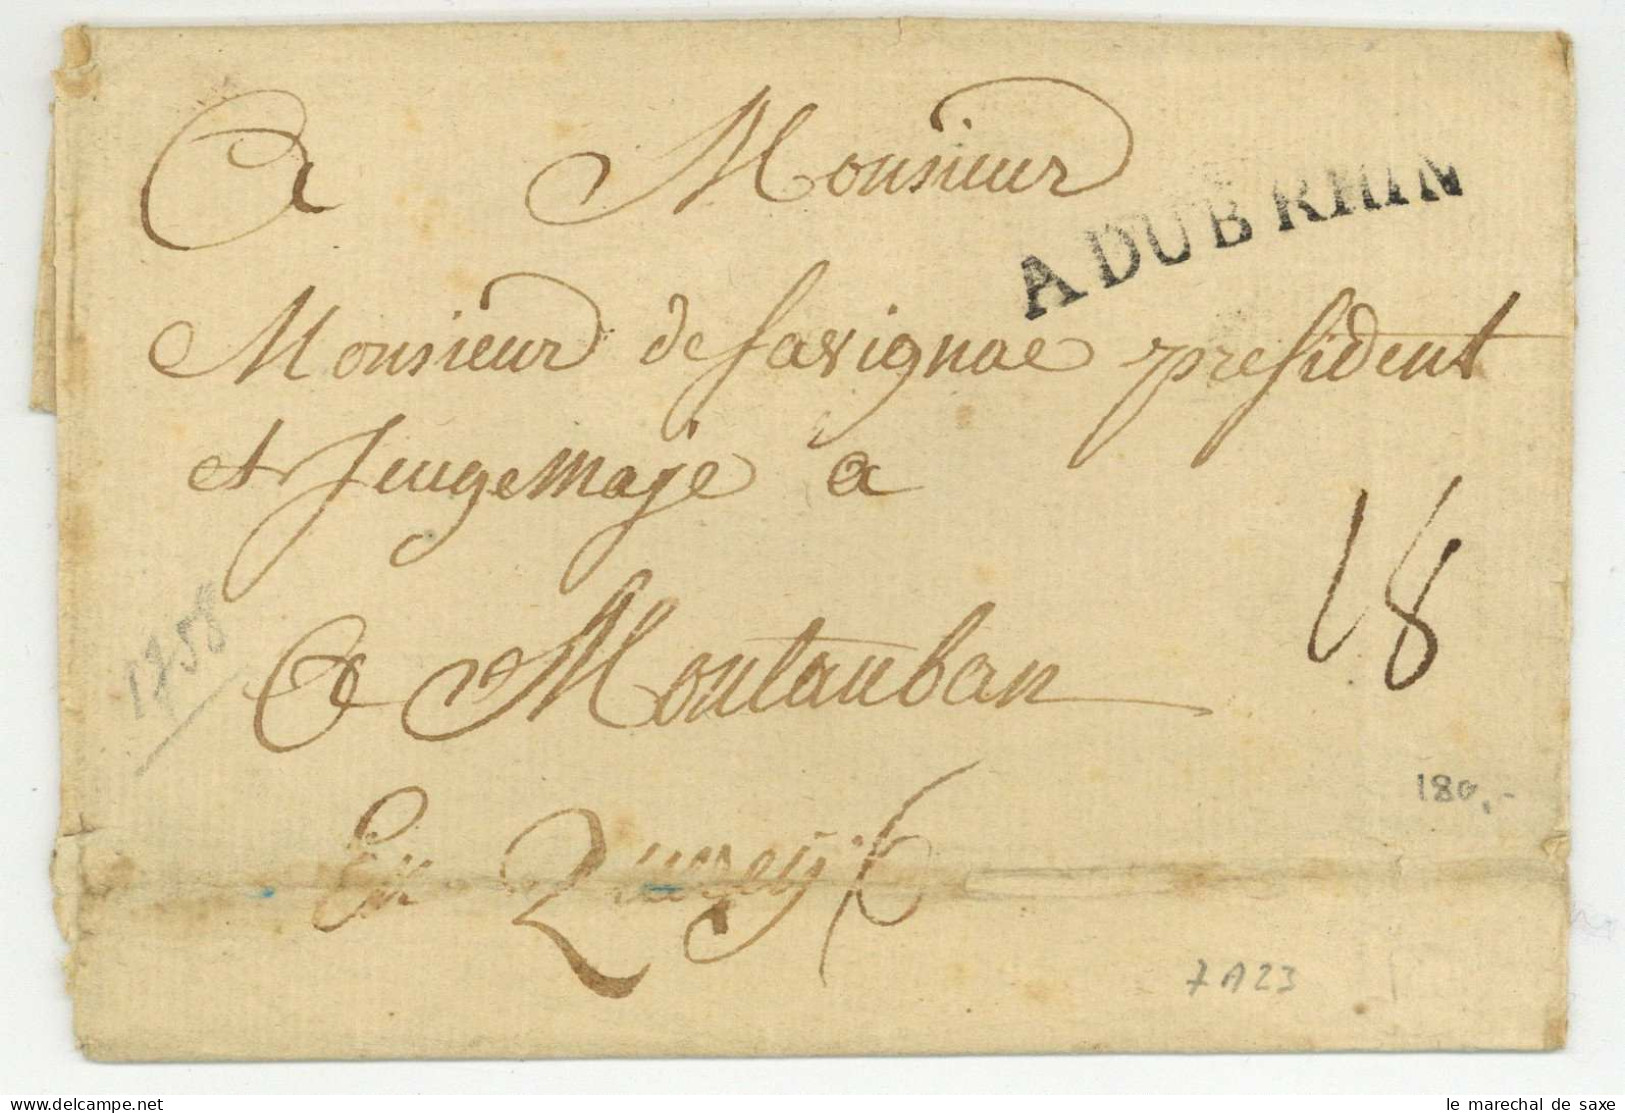 A Monsieur
A DU B RHIN
Monsieur de Savignac president
et Jeuge Maje a
18
1758
A Montauban
180,-
En Quercy
7 A 23
le marechal de saxe